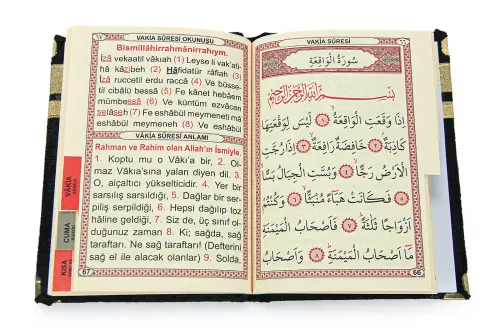 ٦٧
VAKİA SÛRESİ OKUNUŞU
Bismillâhirrahmânirrahıym.
İzâ vekaatil vakıah (1) Leyse li vak'ati-
hâ kâzibeh (2) Hâfidatür râfiah (3)
İzâ ruccetil erdu raccâ (4) Ve büsse-
til cibâlü bessâ (5) Fe kânet hebâem
mümbessâ (6) Ve küntüm ezvâcen
selâseh (7) Fe eshâbül meymeneti mâ
eshâbül meymeneh (8) Ve eshâbül
VÂKİA SÛRESİ ANLAMI
Rahman ve Rahim olan Allah'ın İsmiyle.
1. Koptu mu o Vâkı'a bir, 2. Ol-
maz Vâkıa'sına yalan diyen dil. 3.
O, alçaltıcı yükselticidir. 4. Yer bir
sarsılış sarsıldığı, 5. Dağlar bir ser-
piliş serpildiği, 6. Hepsi dağılıp toz
hâline geldiği, 7. Siz de, üç sınıf ol-
duğunuz zaman 8. Ki; sağda, sağ
taraftarı. Ne sağ taraftarı! (Defterini
sağ el ile alacak olanlar) 9. Solda.
67
VÂKIA
CUMA
KISA
VAKİA SÛRESİ
٦٦
سُورَةُ الْوَاقِعَةِ
بِسْمِ اللّٰهِ الرَّحْمٰنِ الرَّحِيمِ
اِذَا وَقَعَتِ الْوَاقِعَةُ ﴿١﴾ لَيْسَ لِوَقْعَتِهَا
كَاذِبَةٌ ﴿٢﴾ خَافِضَةٌ رَافِعَةٌ ﴿٣﴾ اِذَا رُجَّتِ
الْاَرْضُ رَجًّا ﴿٤﴾ وَبُسَّتِ الْجِبَالُ بَسًّا ﴿٥﴾
فَكَانَتْ هَبَاءً مُنْبَثًّا ﴿٦﴾ وَكُنْتُمْ
اَزْوَاجًا ثَلٰثَةً ﴿٧﴾ فَاَصْحَابُ الْمَيْمَنَةِ
مَا اَصْحَابُ الْمَيْمَنَةِ ﴿٨﴾ وَاَصْحَابُ
66